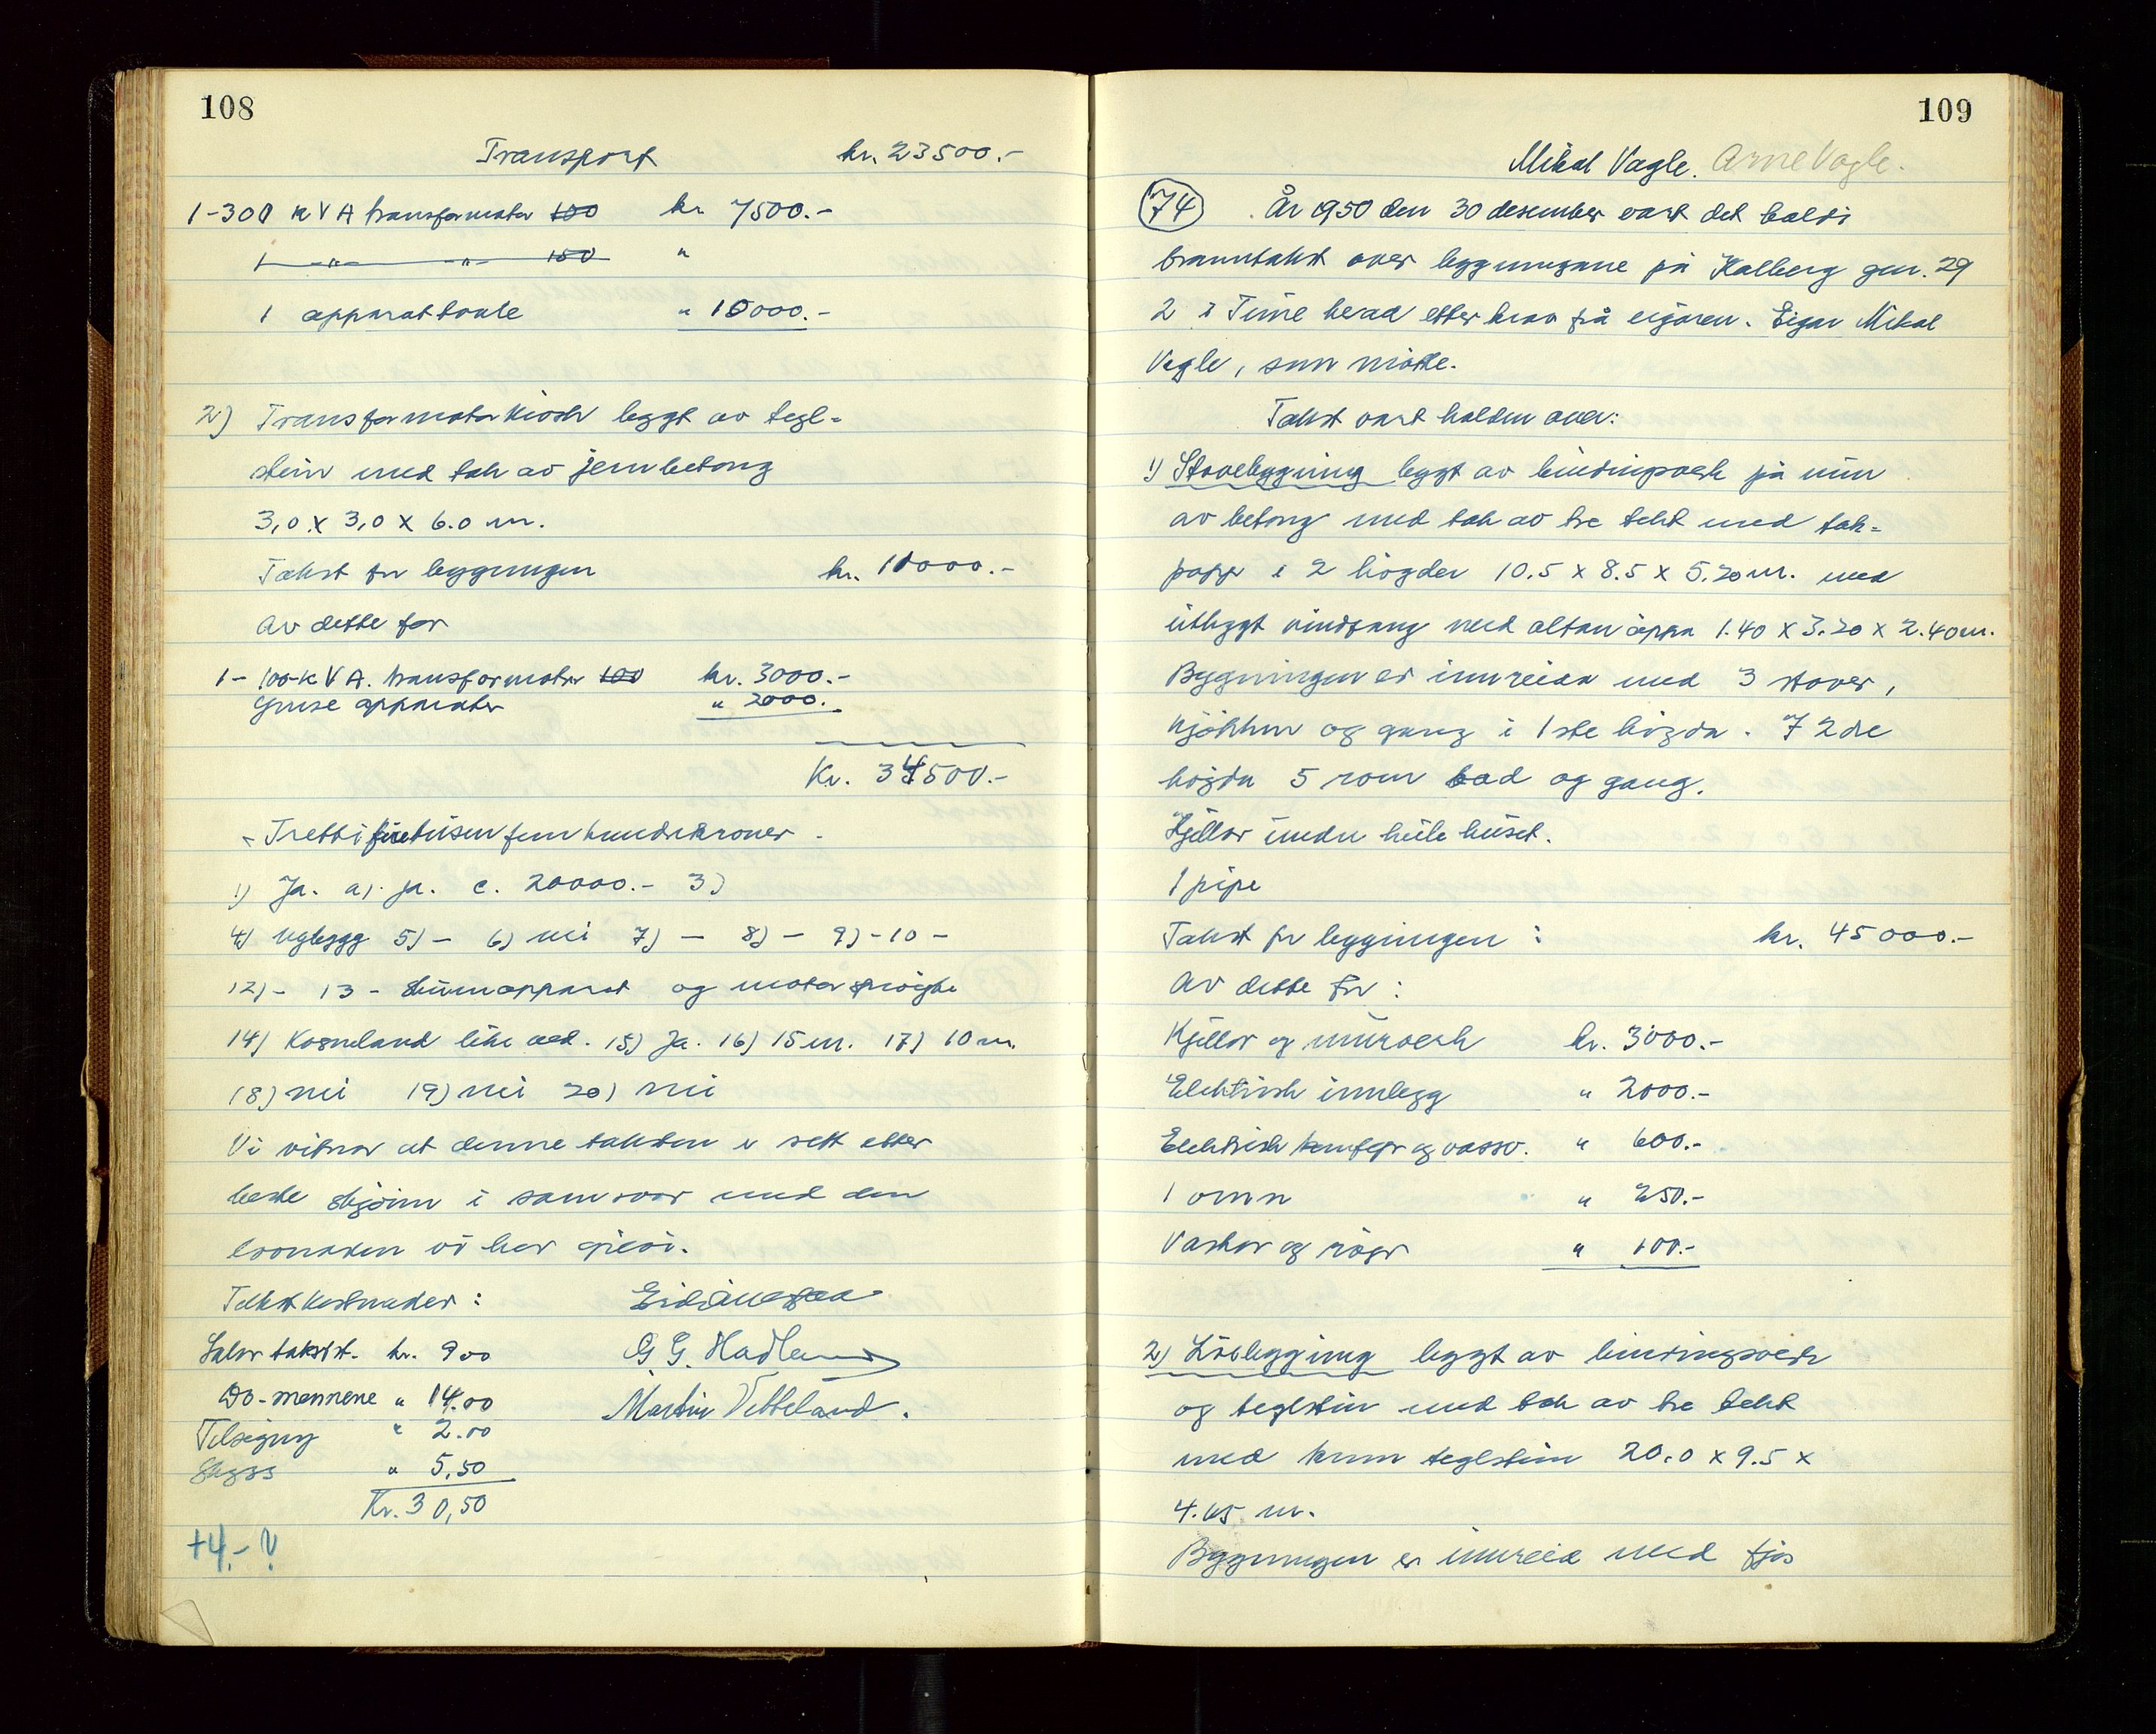 108
Transport kr. 23500.-
1-300 KVA transformator 100 kr 7500.-
1 -"- -"- 150 "
1 apparattavle " 10000.-
2) Transformatorkiosk bygt av tegl=
stein med tak av jernbetong
3,0 x 3,0 x 6.0 m.
Takst for bygningen kr. 11000.-
Av dette for
1- 100-KVA. transformator 100 kr. 3000.-
Ymse apparater " 2000.-
Kr. 34500.-
- Tretti firetusen fem hundre kroner -
1) Ja. a). ja. c. 20000.- 3)
4) Nybygg 5) - 6) nei 7) - 8) - 9) - 10 -
12) - 13 - Skumapparat og motorsprøyte
14) Kosneland like ved. 15) Ja. 16) 15 m. 17) 10 m.
18) nei 19) nei 20) nei
Vi vitnar at denne taksten er sett etter
beste skjønn i samsvar med den
lovnaden vi har gjevi.
Takstkostnader:
G G. Hadland
Salær takstst. kr. 900
Martin Vetteland.
Do-mennene " 14.00
Tilsegning " 2.00
Skyss " 5,50
Kr. 30,50
+4.- ?
109
Mikal Vagle. Arne Vagle.
74 År 1950 den 30 desember vart det haldi
branntakst over bygningane på Kalberg gnr. 29
2 i Time herad etter krav frå eigaren. Eigar Mikal
Vagle, som møtte.
Takst vart halden over:
1) Stovebygning bygt av bindingsverk på mur
av betong med tak av tre tekt med tak=
papp i 2 høgder 10.5 x 8.5 x 5.20 m. med
utbygt vindfang med altan oppå 1.40 x 3.20 x 2.40 m.
Bygningen er innreidd med 3 stover,
kjøkken og gang i 1ste høgda. I 2dre
høgda 5 rom bad og gang.
Kjellar under heile huset.
1 pipe
Takst for bygningen: kr. 45000.-
Av dette for:
Kjellar og murverk kr. 3000.-
Elektrisk innlegg " 2000.-
Elektrisk komfyr og vassv. " 600.-
1 omn " 250.-
Vaskar og røyr " 100.-
2) Løebygging bygt av bindingsverk
og teglstein med tak av tre tekt
med krum teglstein 20.0 x 9.5 x
4.65 m.
Bygningen er innreid med fjøs